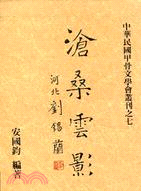 中華民國甲骨文學會叢刊之七
滄桑雲影
河北劉錫蘭
安國鈞 編著